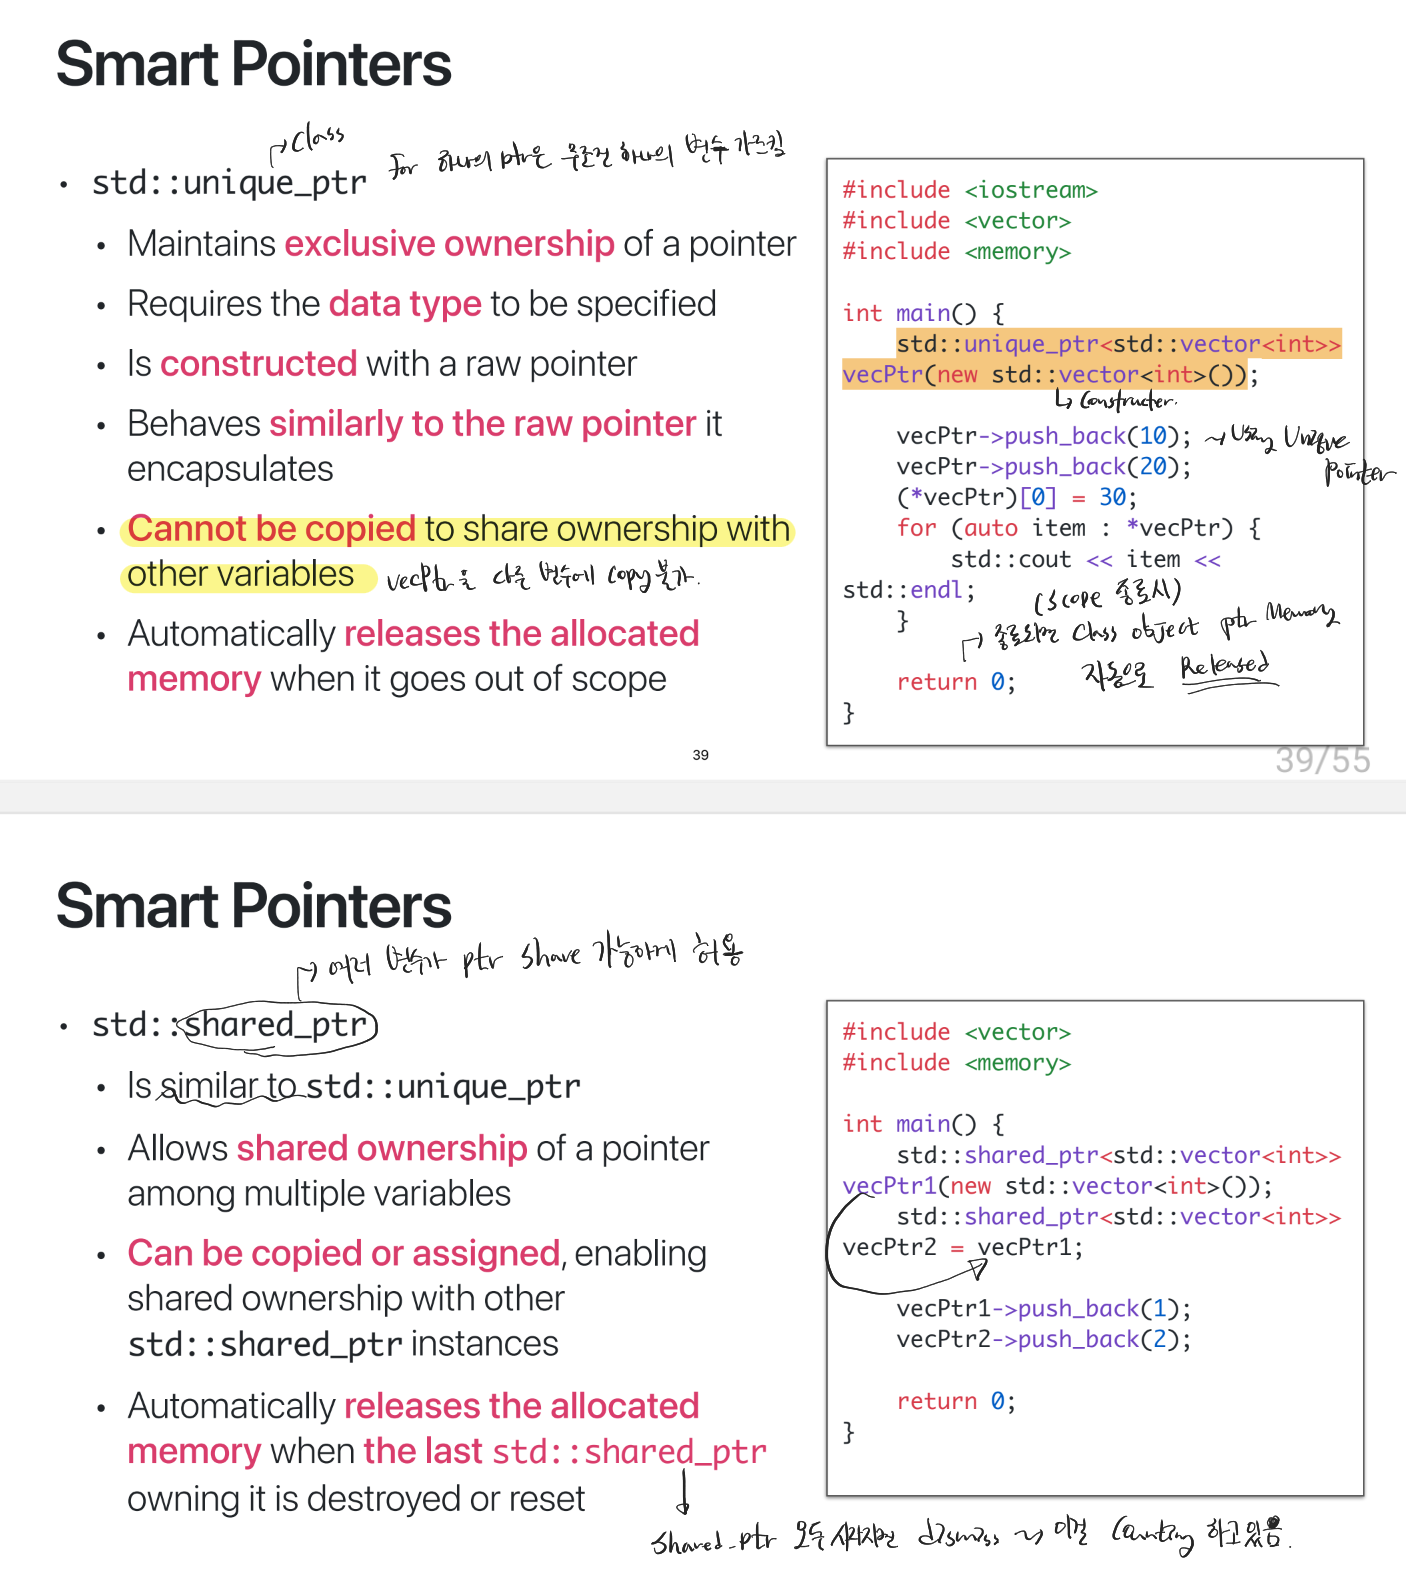 Smart Pointers
Class
for 하나의 ptr은 무조건 하나의 변수 가르킴
• std::unique_ptr
• Maintains exclusive ownership of a pointer
• Requires the data type to be specified
• Is constructed with a raw pointer
• Behaves similarly to the raw pointer it
encapsulates
• Cannot be copied to share ownership with
other variables
vecPtr을 다른 변수에 copy 불가.
• Automatically releases the allocated
memory when it goes out of scope
#include <iostream>
#include <vector>
#include <memory>
int main() {
std::unique_ptr<std::vector<int>>
vecPtr(new std::vector<int>());
↳ Constructer.
vecPtr->push_back(10);
Using Unique
Pointer
vecPtr->push_back(20);
(*vecPtr)[0] = 30;
for (auto item : *vecPtr) {
std::cout << item <<
std::endl;
(Scope 종료시)
}
종료되면 Class object ptr Memory
자동으로 Released
return 0;
}
39
39/55
Smart Pointers
여러 변수가 ptr share 가능하게 허용
• std::shared_ptr
• Is similar to std::unique_ptr
• Allows shared ownership of a pointer
among multiple variables
• Can be copied or assigned, enabling
shared ownership with other
std::shared_ptr instances
• Automatically releases the allocated
memory when the last std::shared_ptr
owning it is destroyed or reset
shared_ptr 모두 사라지면 dismiss → 이걸 Counting 하고있음.
#include <vector>
#include <memory>
int main() {
std::shared_ptr<std::vector<int>>
vecPtr1(new std::vector<int>());
std::shared_ptr<std::vector<int>>
vecPtr2 = vecPtr1;
vecPtr1->push_back(1);
vecPtr2->push_back(2);
return 0;
}